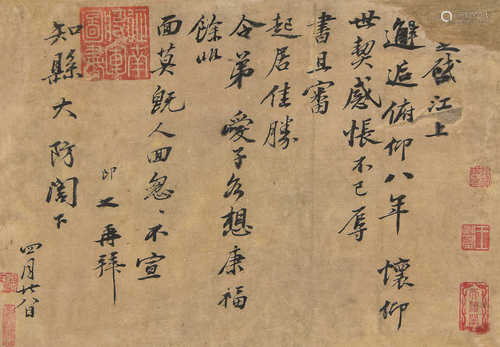 之啟江上
邂逅俯仰八年 懷仰
世契感悵不已辱
書且審
起居佳勝
令弟 愛子各想康福
餘非
面莫既人回怱、不宣
之再拜
知縣大防閣下
四月廿八日